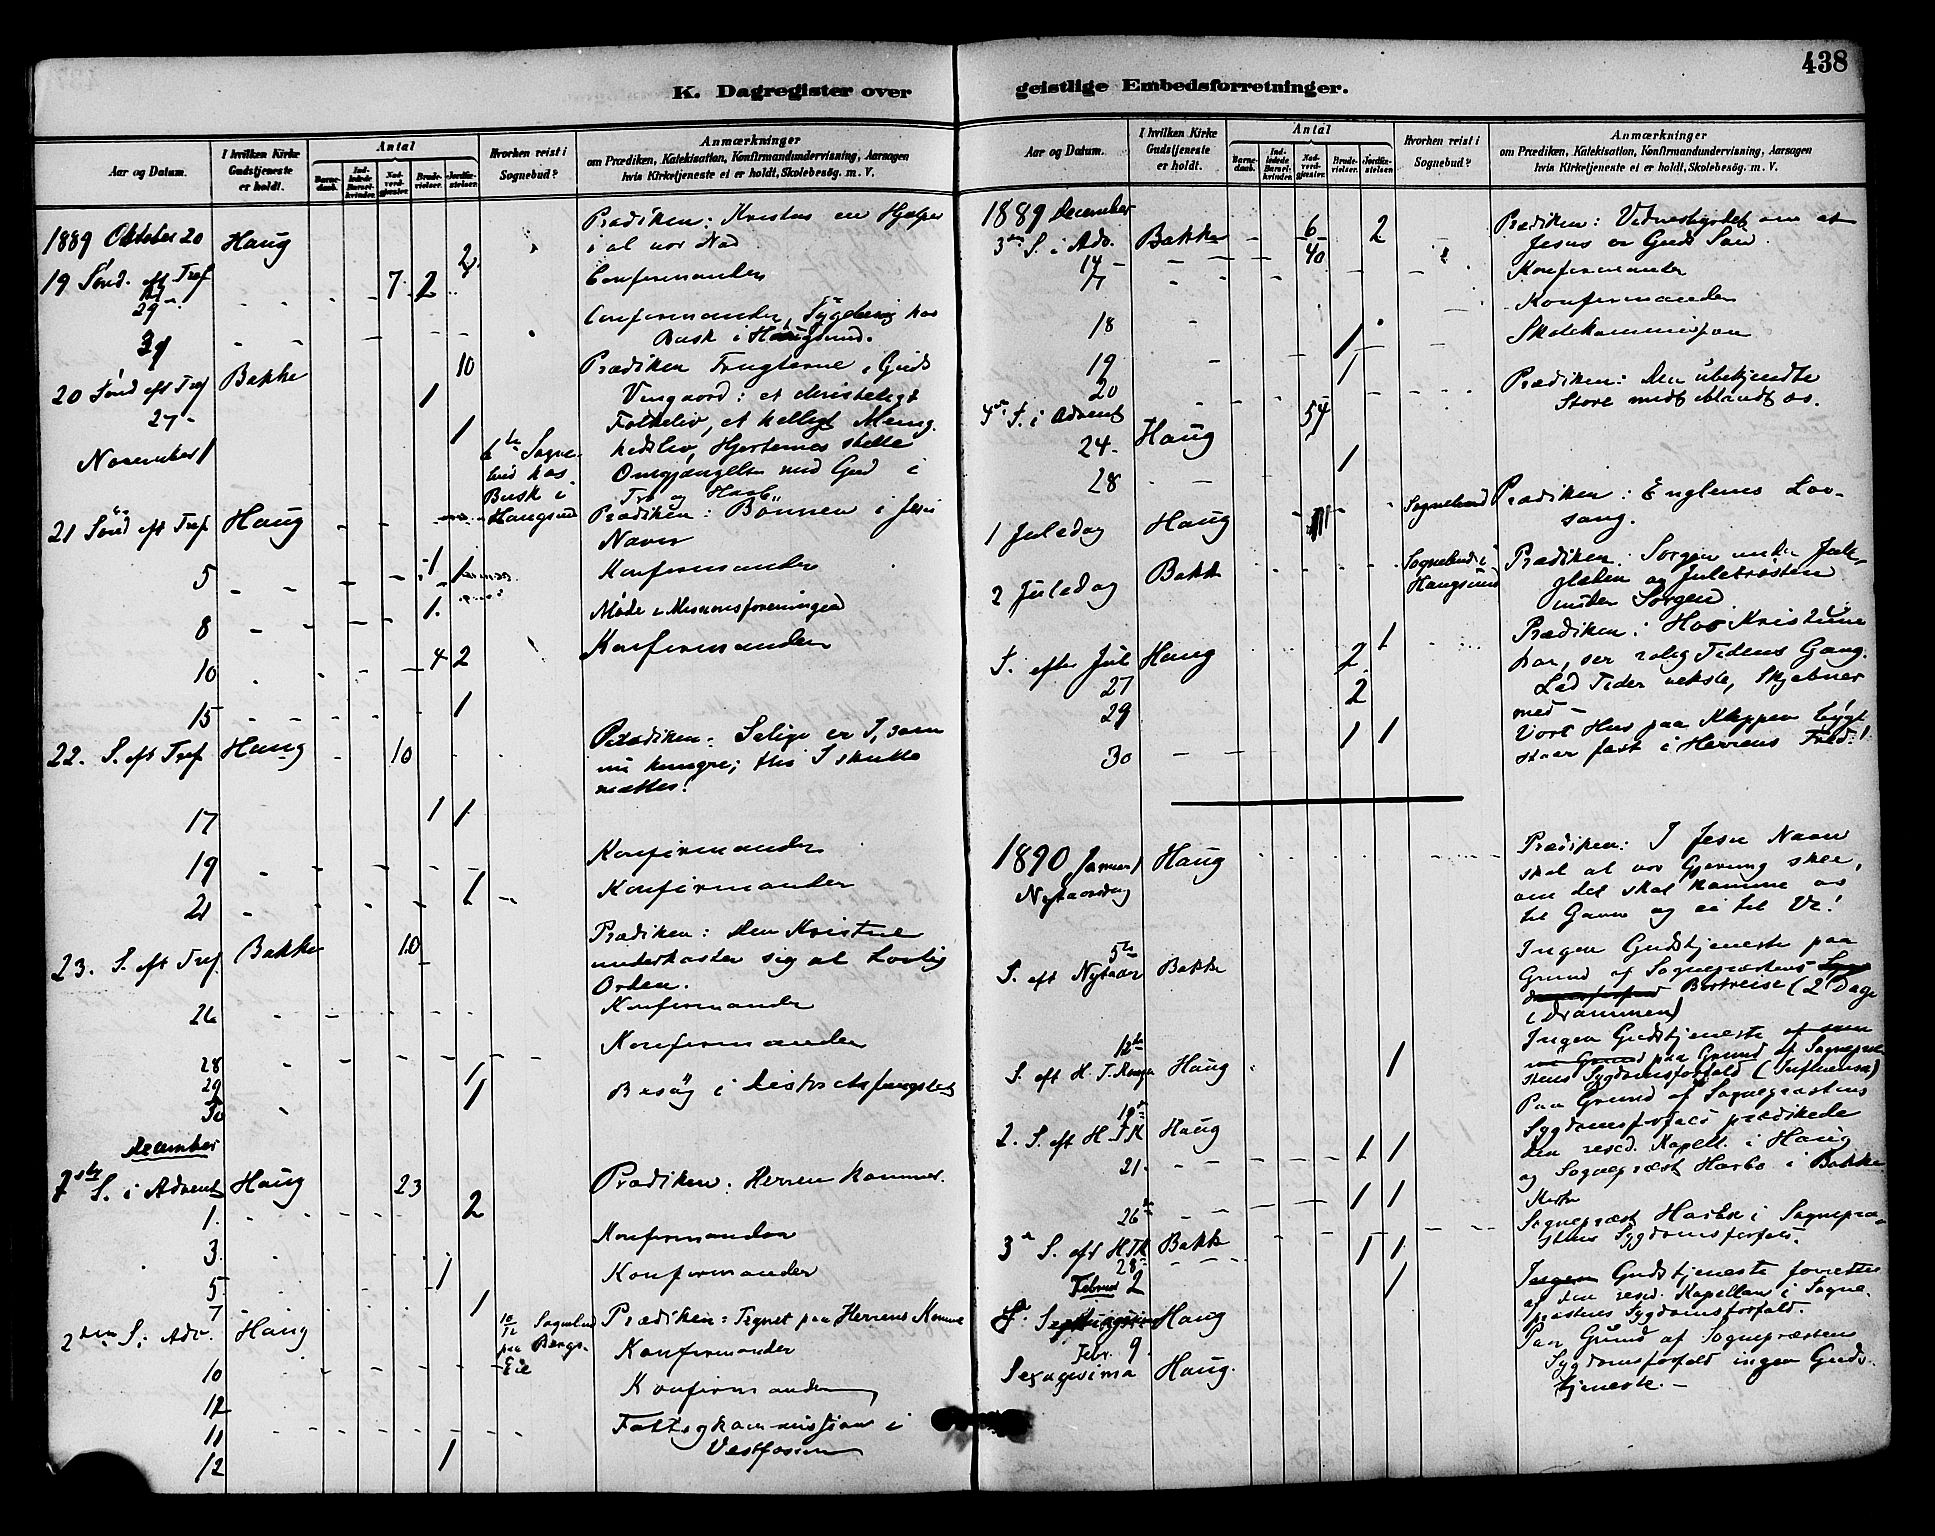 438
K. Dagregister over geistlige Embedsforretninger.
Aar og Datum.
I hvilken Kirke Gudstjeneste er holdt.
Antal
Barnedaab.
Indledede Barselkvinder.
Nadverdgjæster.
Brudevielser.
Jordfæstelser.
Hvorhen reist i Sognebud?
Anmærkninger
om Prædiken, Katekisation, Konfirmandundervisning, Aarsagen
hvis Kirketjeneste ei er holdt, Skolebesøg. m. V.
1889 Oktober 20 Haug 2 Prædiken: Kristus en Hjælper
i al vor Nød
19 Sönd. eft Tref 7 2 Confirmander
29
Confirmander, Sygeberig hos
Busk i Haugsund.
20 Sönd eft Tref Bakke 10 Prædiken Frugterne i Guds
27 1 Vingaard: et christeligt
Folkeliv, et helligt Menig-
November 1 1 6te Sogne- hedsliv, Hjerternes stille
bud hos Omgjængelse med Gud i
Busk i Tro og Haab"
21 Sönd eft Tref Haug Haugsund Prædiken: Bönnen i Jesu
Navn
5 1 1 Konfirmander
8 1 Møde i Missionsforeningen
10 4 2 Konfirmander
15 1
22. S. eft Tref Haug 10 Prædiken: Salige er I, som
nu hungre; thi I skulle
mættes!
17 1 1
19 Konfirmander
21 1 Konfirmander
23. S. eft Tref Bakke 10 Prædiken: Den Kristne
underkaster sig al Lovlig
Orden.
26 Konfirmander
28 Konfirmander
29 1
30 1 Besög i Distriktsfængslet
December
S. i Advent Haug 23 Prædiken: Herren kommer.
1. 2
3. Konfirmander
5 1 Konfirmander
7 1
2den S. i Adv. Haug 10/12 Sognebud Prædiken: Tegnet paa Herrens Komme
paa Bergs-
10 Eie Konfirmander
12 Konfirmander
11 Fattigkommission i
12 1 Vestfossen
Aar og Datum.
I hvilken Kirke Gudstjeneste er holdt.
Antal
Barnedaab.
Indledede Barselkvinder.
Nadverdgjæster.
Brudevielser.
Jordfæstelser
Hvorhen reist i Sognebud?
Anmærkninger
om Prædiken, Katekisation, Konfirmandundervisning, Aarsagen
hvis Kirketjeneste ei er holdt, Skolebesøg. m. V.
1889 December
3die S. i Adv. Bakke 6 2 Prædiken: Vidnesbyrdet om at
Jesus er Guds Søn.
14 40 Konfirmander
17 Konfirmander
18 1 Skolekommission
19 1
20
4de S. i Advent Haug 54 Prædiken: Den ubekjendte
Store midt iblandt os.
24 1
28
1 Juledag Haug Sognebud Prædiken: Englenes Lov-
sang.
2 Juledag Bakke Sognebud i Prædiken: Sorgen under Jule-
Haugsund glæden og Juletrösten
under Sorgen
S. efter Jul Haug 2 1 Prædiken: Hos Kristne
har, ser rolig Tidens Gang.
27 2 Lad Tider vexle, Skjebner
29 1 1 med –
Vort Hus paa Klippen bÿgt
30 staar fast i Herrens Fred!
1890 Januar 1 Haug Prædiken: I Jesu Navn
Nytaarsdag skal al vor Gjerning skee,
om det skal komme os
til Gavn og ei til Ve!
5te
S. eft Nytaar Bakke Ingen Gudstjeneste paa
Grund af Sognepræstens
Bortreise (2 Dage
i Drammen)
12te
S. eft H. T. Konger Haug 1 Ingen Gudstjeneste
paa Grund af Sognepræ-
stens Sygdomsforfald (Influensa)
19de
2. S. eft H. T. K Haug Paa Grund af Sognepræstens
Sygdomsforfald prædikede
21. 1 1 den resid. Kapell. i Haug
og Sognepræst Harbo i Bakke
26de 1 1 Kirke
3die S. eft H.T.K Bakke 1 1 Sognepræst Harbo i Sognepræ-
stens Sygdomsforfald.
28
Februar 2 1 Ingen Gudstjeneste forrettes
S. Septuagesima Haug af den resid. Kapellan i Sogne-
præstens Sygdomsforfald.
Febr. 9.
Sexagesima Haug. Paa Grund af Sognepræstens
Sygdomsforfald ingen Guds-
tjeneste. –